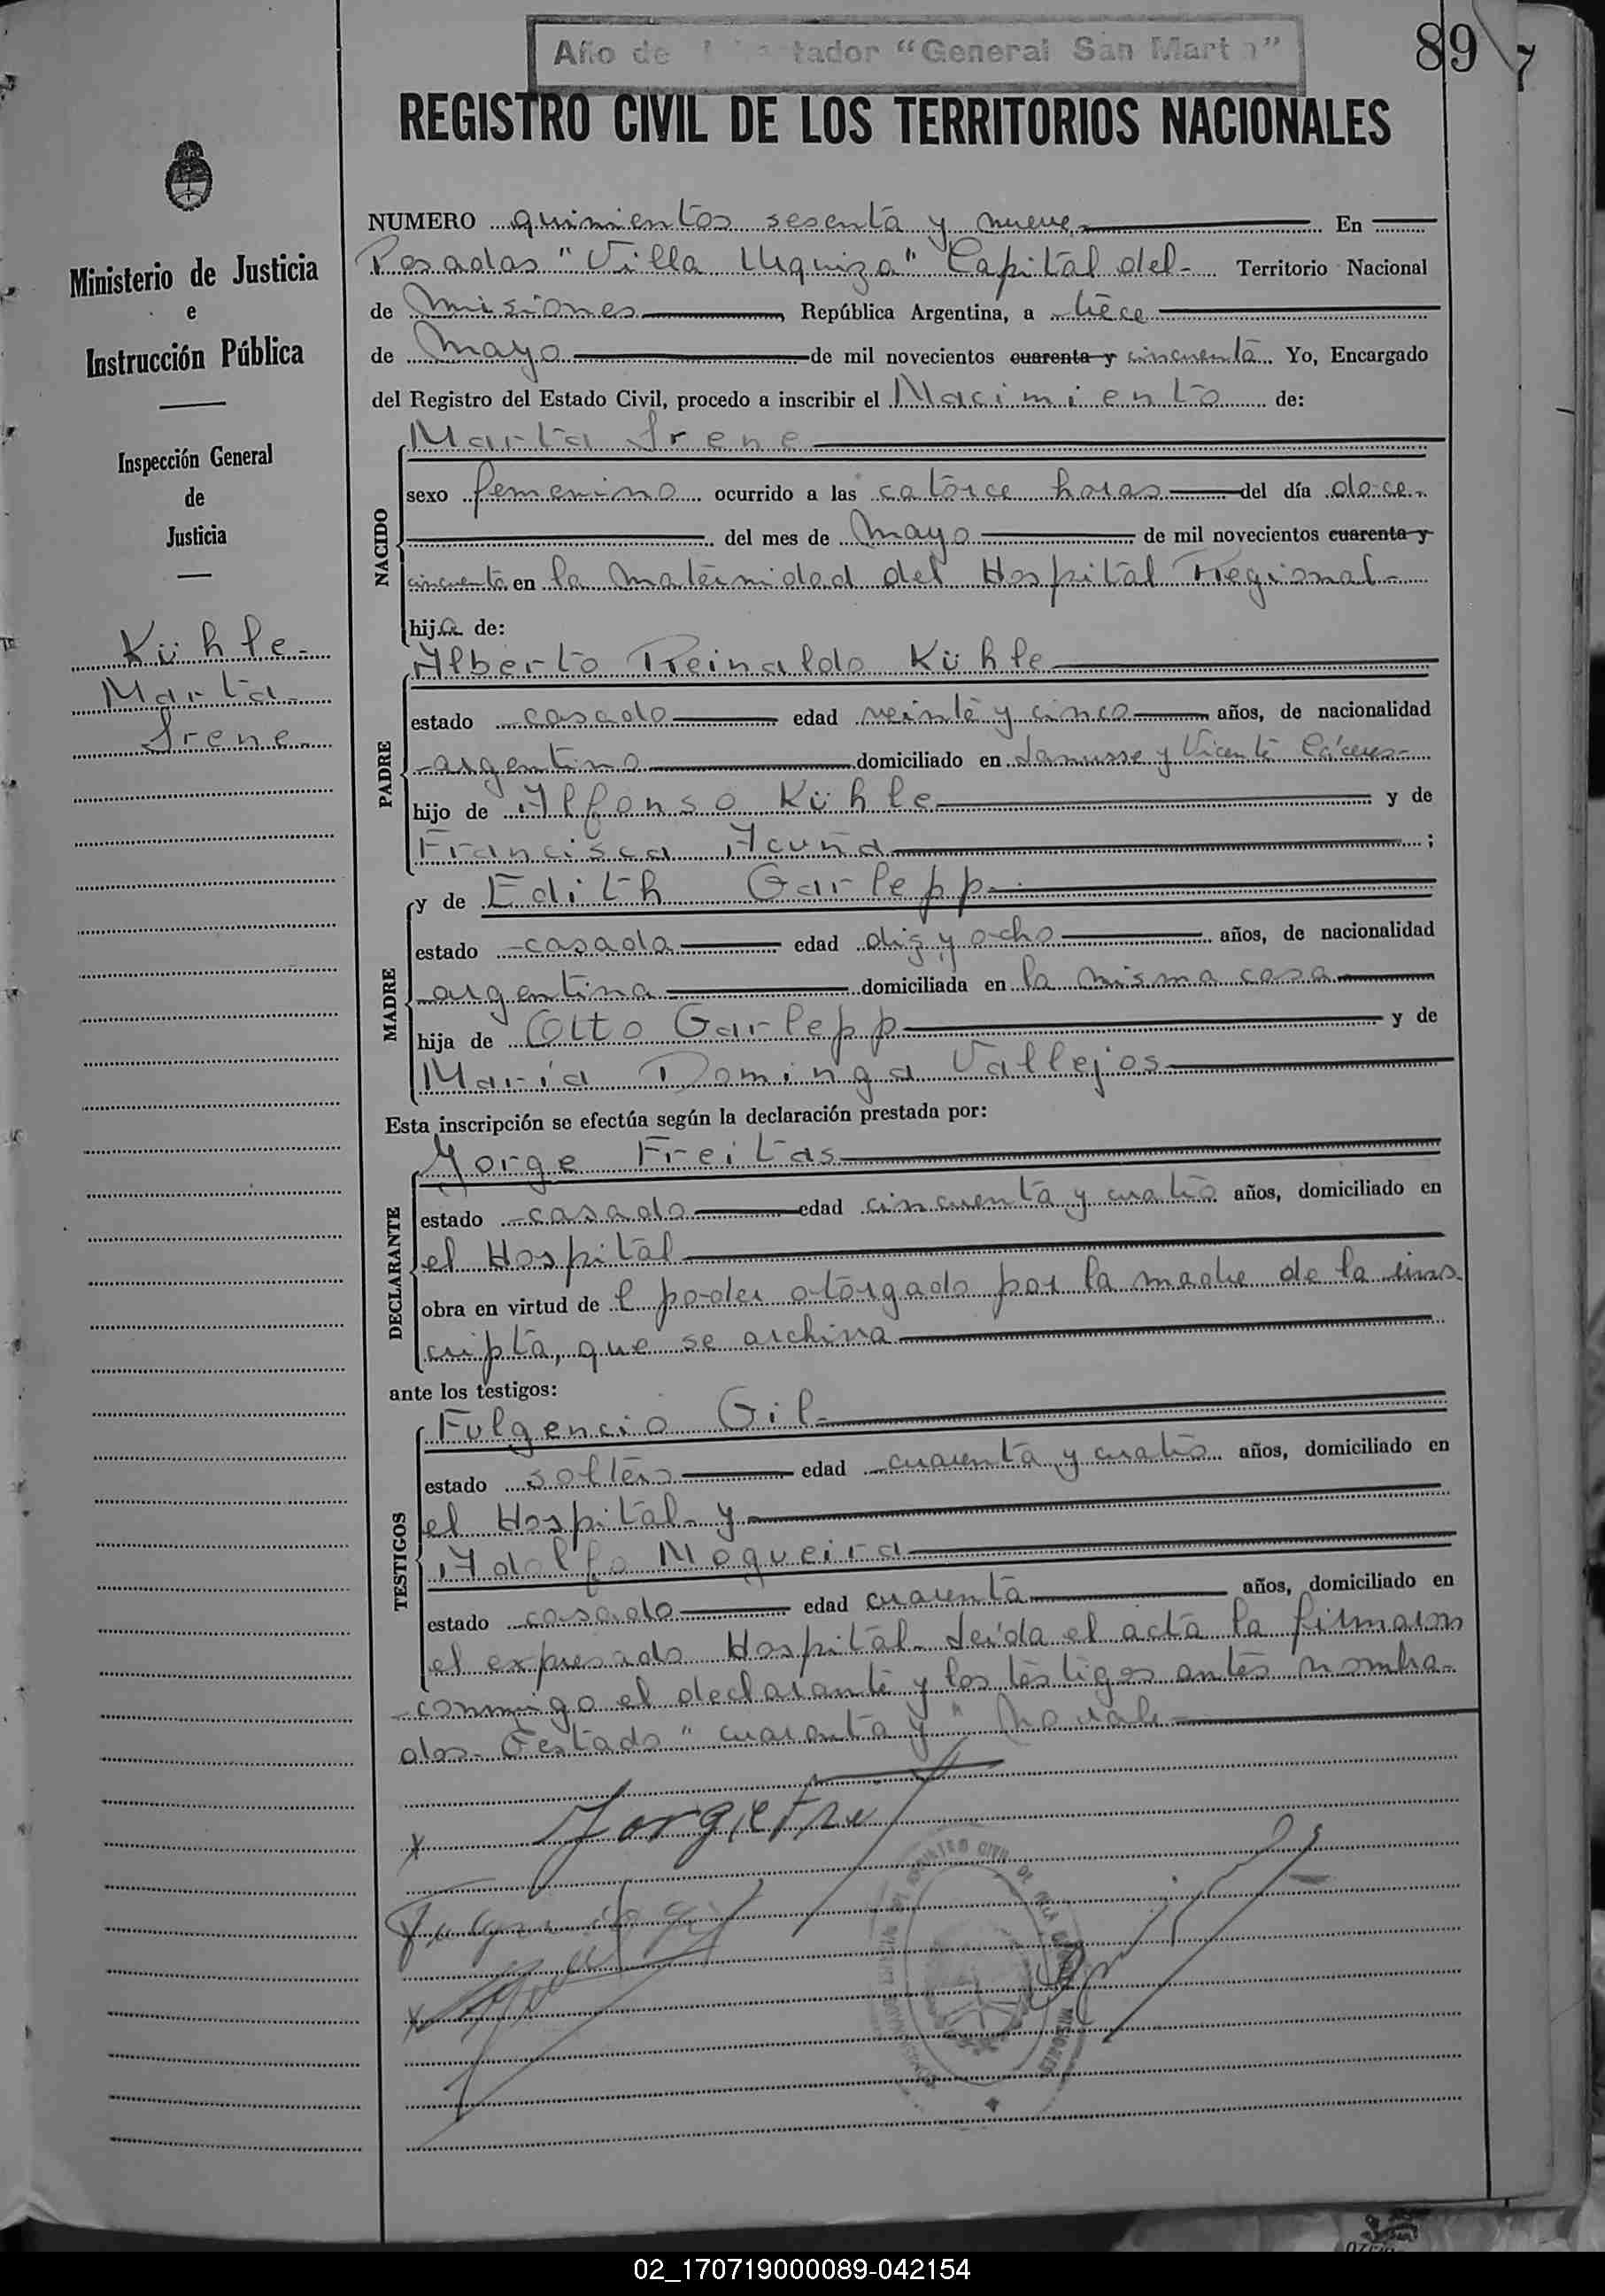 Año de tador "General San Mart n"
89
7
REGISTRO CIVIL DE LOS TERRITORIOS NACIONALES
Ministerio de Justicia
e
Instrucción Pública
Inspección General
de
Justicia
Kühle
Marta
Irene
NUMERO quinientos sesenta y nueve En
Posadas "Villa Urquiza" Capital del Territorio Nacional
de Misiones, República Argentina, a trece
de Mayo de mil novecientos cuarenta y cincuenta Yo, Encargado
del Registro del Estado Civil, procedo a inscribir el Nacimiento de:
NACIDO
Marta Irene
sexo femenino ocurrido a las catorce horas del día doce
del mes de Mayo de mil novecientos cuarenta y
cincuenta en la Maternidad del Hospital Regional
hija de:
PADRE
Alberto Reinaldo Kühle
estado casado edad veinte y cinco años, de nacionalidad
argentino domiciliado en Lanusse y Vicente Cáceres
hijo de Alfonso Kühle y de
Francisca Acuña ;
MADRE
y de Edith Garlepp
estado casada edad diz y ocho años, de nacionalidad
argentina domiciliada en la misma casa
hija de Otto Garlepp y de
María Dominga Vallejos
Esta inscripción se efectúa según la declaración prestada por:
DECLARANTE
Jorge Freitas
estado casado edad cincuenta y cuatro años, domiciliado en
el Hospital
obra en virtud de l poder otorgado por la madre de la ins
cripta, que se archiva
ante los testigos:
TESTIGOS
Fulgencio Gil
estado soltero edad cuarenta y cuatro años, domiciliado en
el Hospital y
Adolfo Nogueira
estado casado edad cuarenta años, domiciliado en
el expresado Hospital. Leída el acta la firmaron
conmigo el declarante y los testigos antes nombra-
dos- Testado "cuarenta y" No vale
REGISTRO CIVIL DE VILLA
MISIONES
02_170719000089-042154